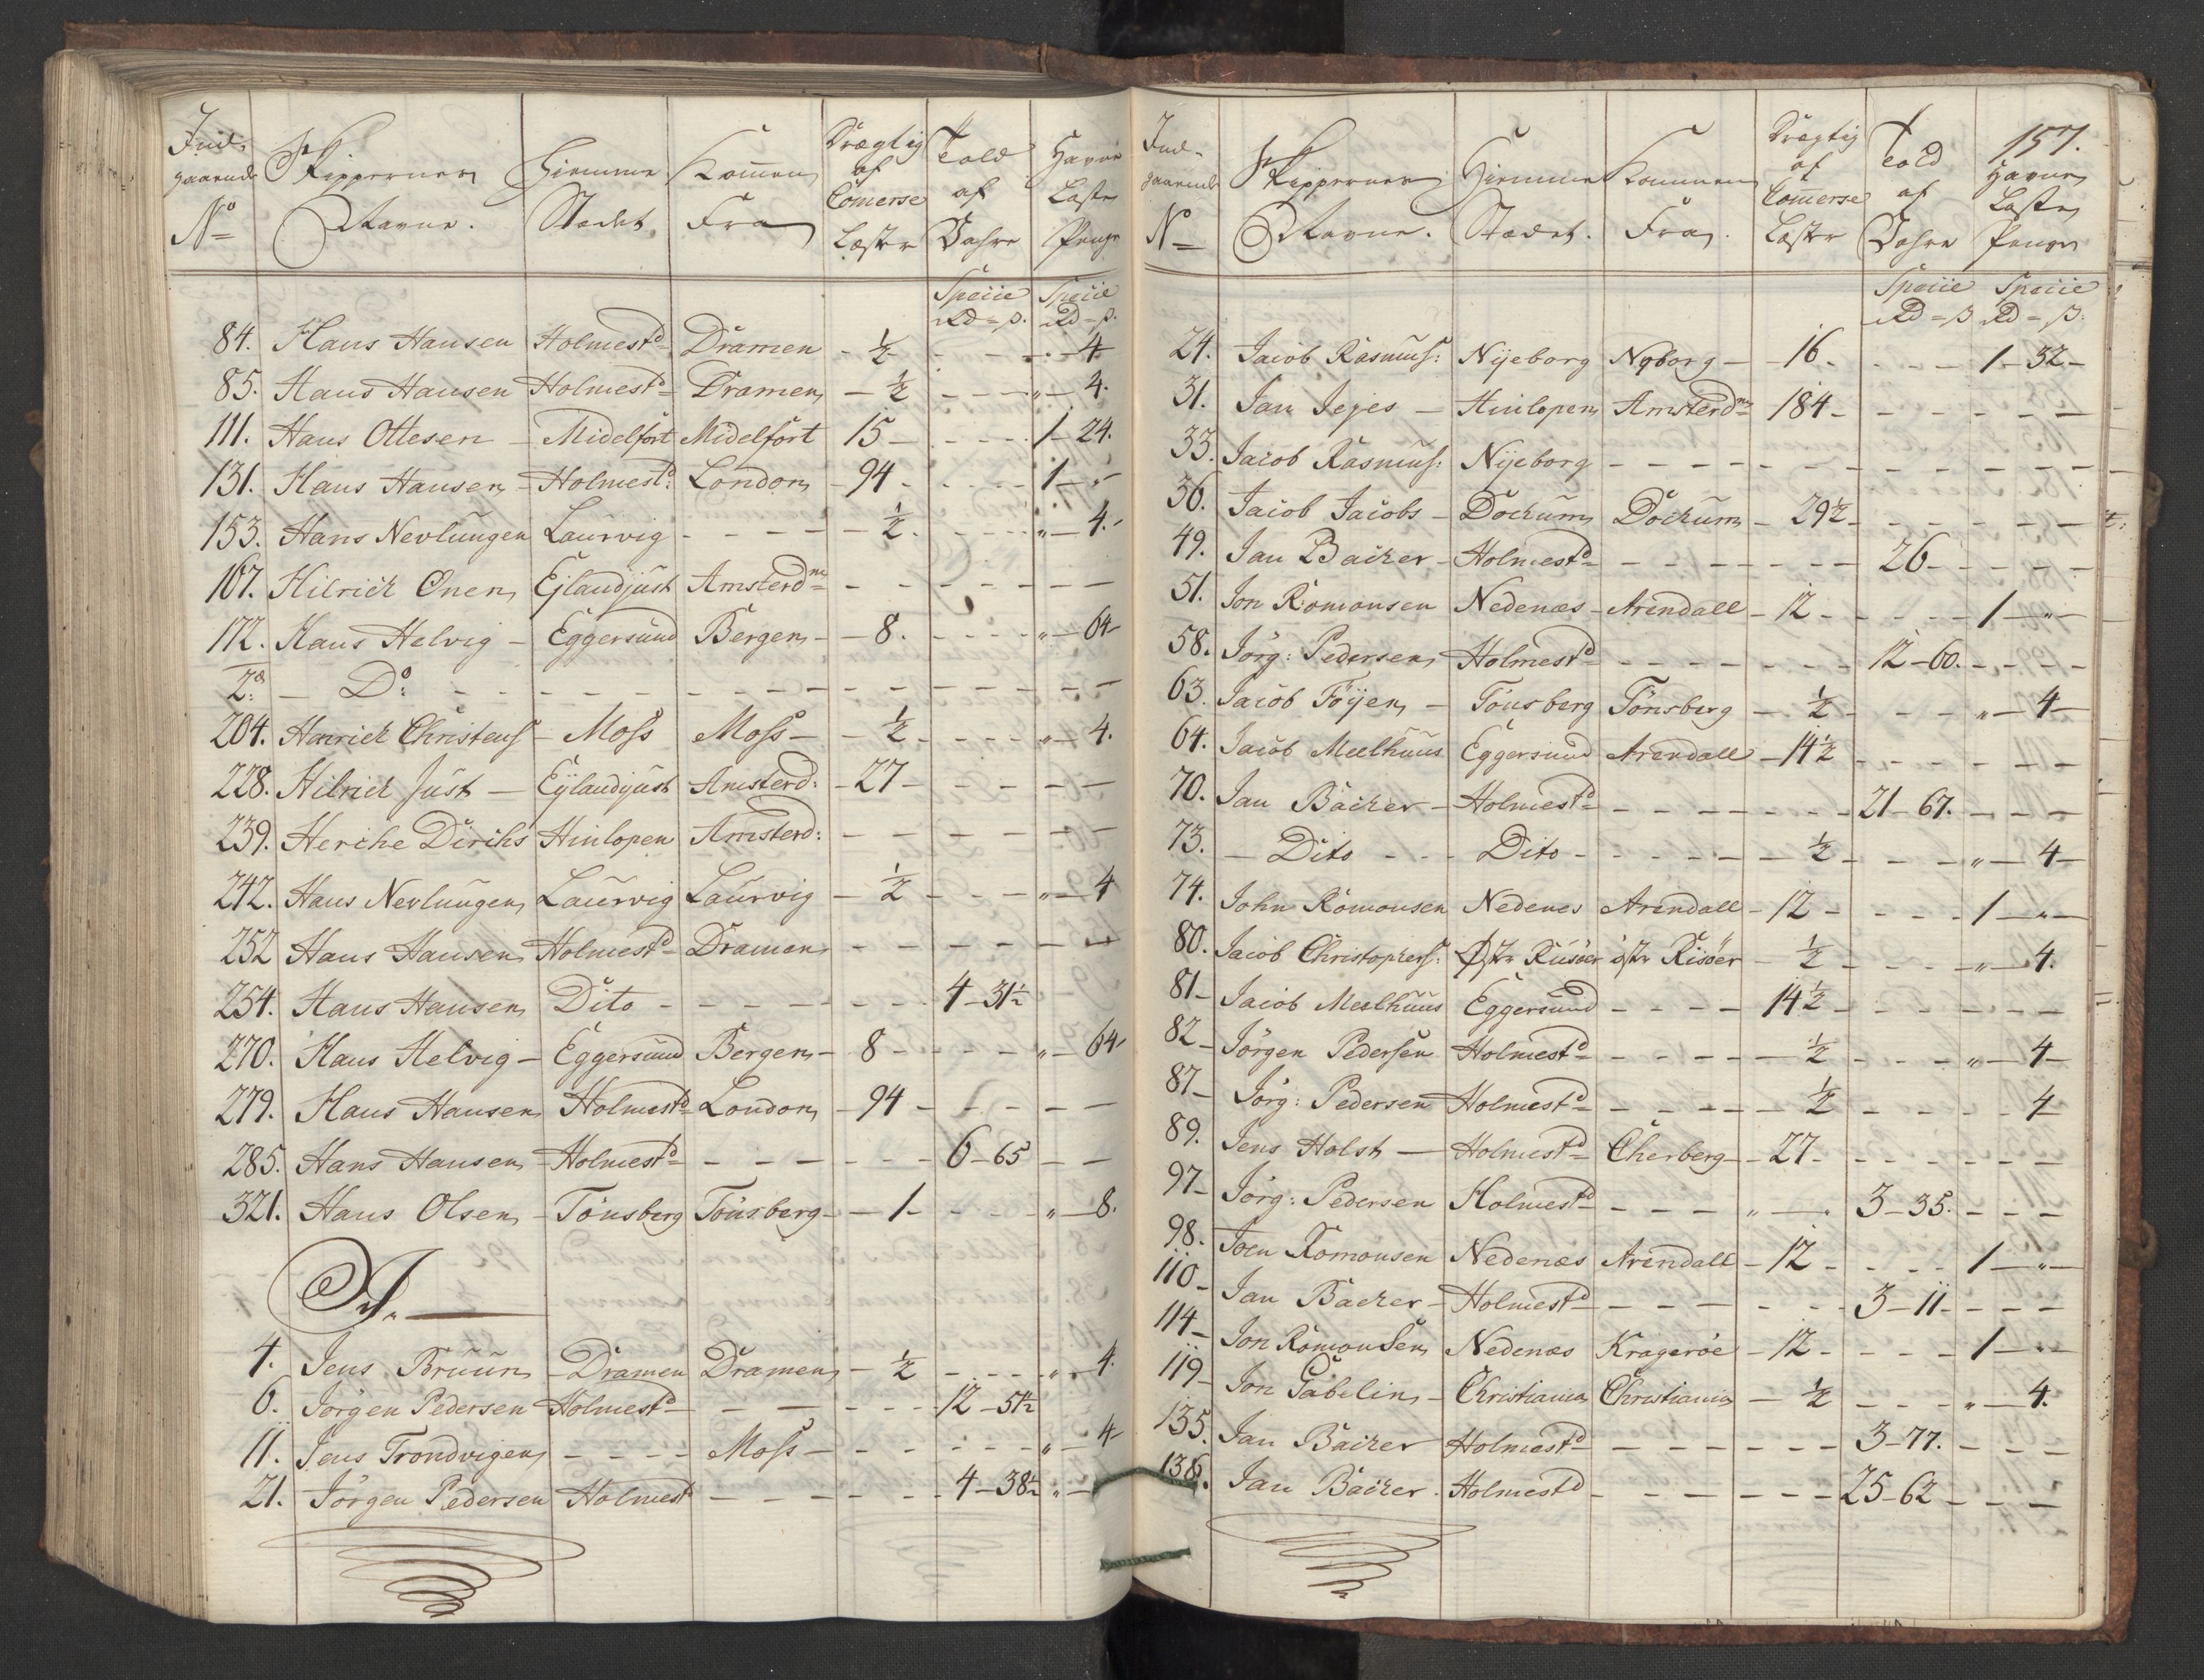 Ind-
gaaende
No
Skippernes
Navne.
Hiemme
Stædet
Kommen
Fra
Drægtig
af
Comerse
Læster
Told
af
Vahre
Havne
Læste
Penge
Specie Specie
Rd - s. Rd - s.
84. Hans Hansen Holmestd Dramen - ½ - - - - 4
85. Hans Hansen Holmestd Dramen - ½ - - - " - 4.
111. Hans Ottesen - Midelfort Midelfort 15 - - - - 1 - 24.
131. Hans Hansen - Holmestd: London - 94 - - - - 1 - "
153. Hans Nevlungen Laurvig - - - - ½ - - - " - 4.
167. Hilrich Onen Ejlandjust Amsterdm - - - - - -
172. Hans Helvig - Eggersund Bergen - 8. - - - " - 64
2de - Do: - - - - - - - -
204. Henrich Christens - Moss Moss - - ½ - - - - " - 4.
228. Hilrich Just - Eylandjust Amsterd: - 27 - - - - -
239. Herche Dirchs Hinlopen Amsterd: - - - - - -
242. Hans Nevlungen Laurvig Laurvig - ½ - - - " - 4
252 Hans Hansen Holmestd Dramen - - - - - -
254. Hans Hansen Dito - - - - - - 4 - 31½
270. Hans Helvig - Eggersund Bergen - 8 - - - - " - 64
279. Hans Hansen Holmestd London - 94 - - - - -
285. Hans Hansen - Holmestd - - - - - - 6 - 65 - -
321. Hans Olsen - Tönsberg Tönsberg - 1 - - - - " - 8.
J. -
4. Jens Bruun - Dramen Dramen - ½ - - - - " - 4.
6. Jörgen Pedersen Holmestd - - - - - 12 - 5½
11. Jens Trondvigen - - - - Moss - - - - - - " - 4
21. Jörgen Pedersen Holmestd - - - - - - 4 - 38½ " -
157.
Ind-
gaaende
No
Skippernes
Navne.
Hiemme
Stædet.
Kommen
Fra.
Drægtig
af
Comerse
Læster
Told
af
Vahre
Havne
Læste
Penge
Specie Specie
Rd - s Rd - s.
24. Jacob Rasmus: Nijeborg Nyborg - 16 - - - - 1 - 32 -
31. Jan Jejes - Hinlopen Amsterdm 184 - - - - - - -
33. Jacob Rasmus: Nijeborg - - - - - - - - - -
36. Jacob Jacobs - Dockum Dockum - 29½ - - - - - -
49. Jan Backer - Holmestd - - - - - - - 26 - - - - -
51. Jon Romonsen Nedenæs - Arendall - 12 - - - - 1 - " -
58. Jörg: Pedersen Holmestd - - - - - - - 12 - 60. - - - -
63. Jacob Föyen - Tönsberg Tönsberg - ½ - - - " - 4 -
64. Jacob Meelhuus Eggersund Arendall - 14½ - - - - - -
70. Jan Backer - Holmestd - - - - - - - 21 - 67. - - -
73. - Dito - - - Dito - - - - - - ½ - - - " - 4 -
74. John Romonsen Nedenes Arendall - 12 - - - - 1 - " -
80. Jacob Christophers: Östr Riisöer östr Risöer - ½ - - - - " - 4.
81 - Jacob Meelhuus Eggersund - - - - 14½ - - - - - -
82 - Jörgen Pedersen Holmestd - - - - - ½ - - - " - 4 -
87 - Jörg: Pedersen Holmestd - - - - - ½ - - - - - 4
89. Jens Holst - Holmestd Cherberg - 27 - - - - - - -
97 - Jörg: Pedersen Holmestd - - - - " - " 3 - 35. - - -
98. Joen Romonsen Nedenæs Arendall - 12 - - - - 1 - " -
110 - Jan Backer - Holmestd - - - - - - 3 - 11 - - - -
114 - Jon Romonsen Nedenæs Kragerøe - 12 - - - - 1 - " -
119 - Jon Gabelin - Christiania Christiania - ½ - - - " - 4.
135. Jan Backer Holmestd - - - - - - 3 - 77. - - -
138. Jan Backer. Holmestd - - - - - - 25 - 62 - - - -